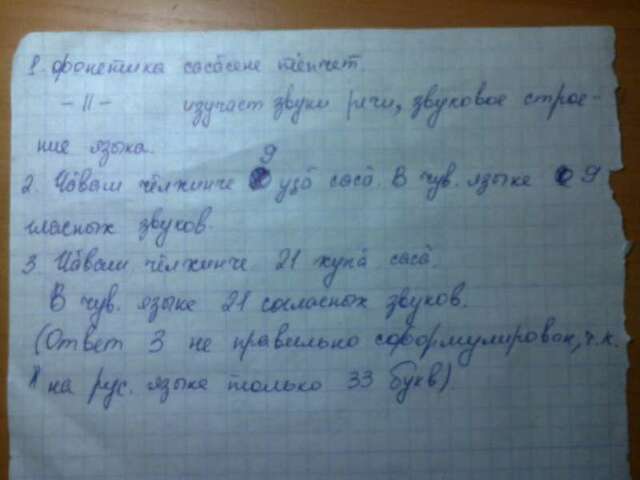 1. Фонетика сасӑсене тӗпчет.
– 11 – изучает звуки речи, звуковое строе-
ние языка.
2. Чӑваш чӗлхинче 9 уҫӑ сасӑ. В чув. языке 9
гласных звуков.
3. Чӑваш чӗлхинче 21 хупӑ сасӑ.
В чув. языке 21 согласных звуков.
(Ответ 3 не правильно сформулирован, т.к.
на рус. языке только 33 букв)